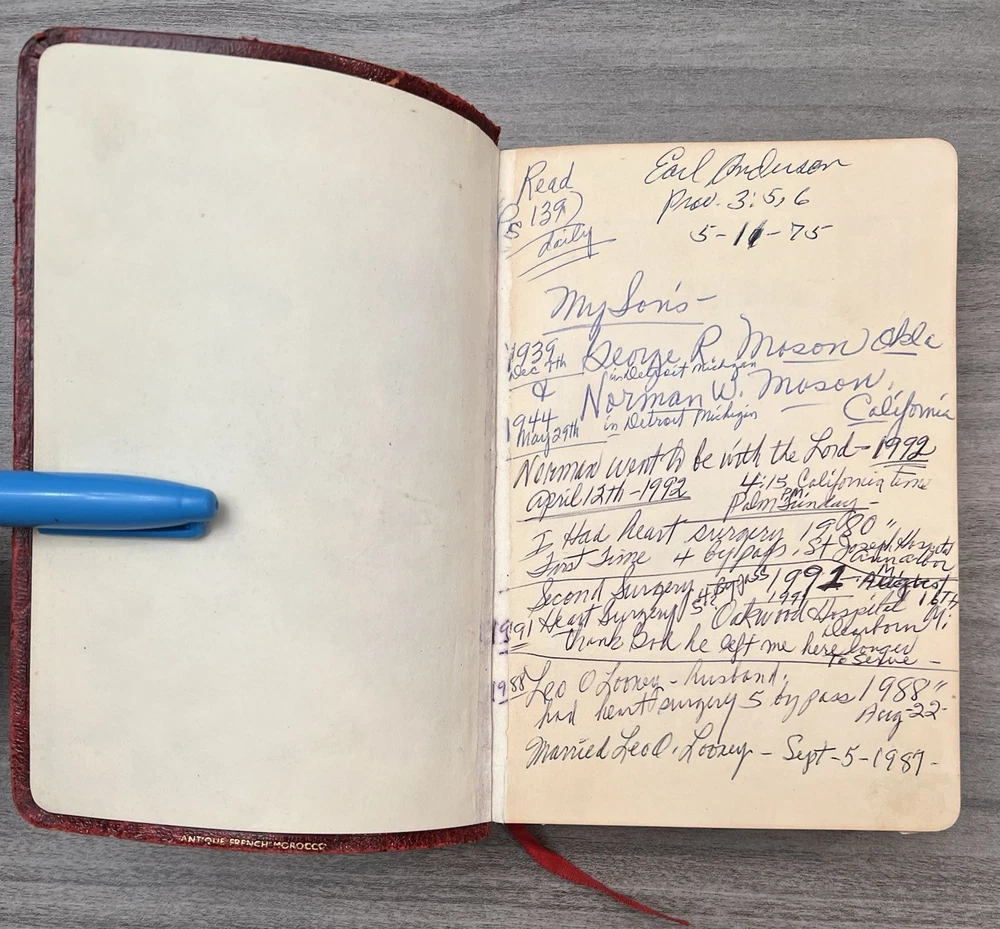 Read
Ps 139)
daily
Earl Anderson
Prov. 3:5,6
5-11-75
My Son's -
1939 George R. Mason Okla
Dec 7th in Detroit Michigan
& Norman W. Mason.
1944 California
May 29th in Detroit Michigan
Norman went to be with the Lord - 1992
April 12th - 1992 4:15 PM California time
Palm Sunday -
I Had heart surgery 1980"
First Time 4 by pass. St Joseph Hospital
Ann arbor
Second Surgery by pass 1991 - August
1991 Heart Surgery 1991 Oakwood Hospital 16th
Dearborn
Thank God he left me here longer
To Serve -
1988 Leo O Looney - husband.
had heart surgery 5 by pass 1988"
Aug-22-
Married Leo O. Looney - Sept-5-1987-
ANTIQUE FRENCH MOROCCO